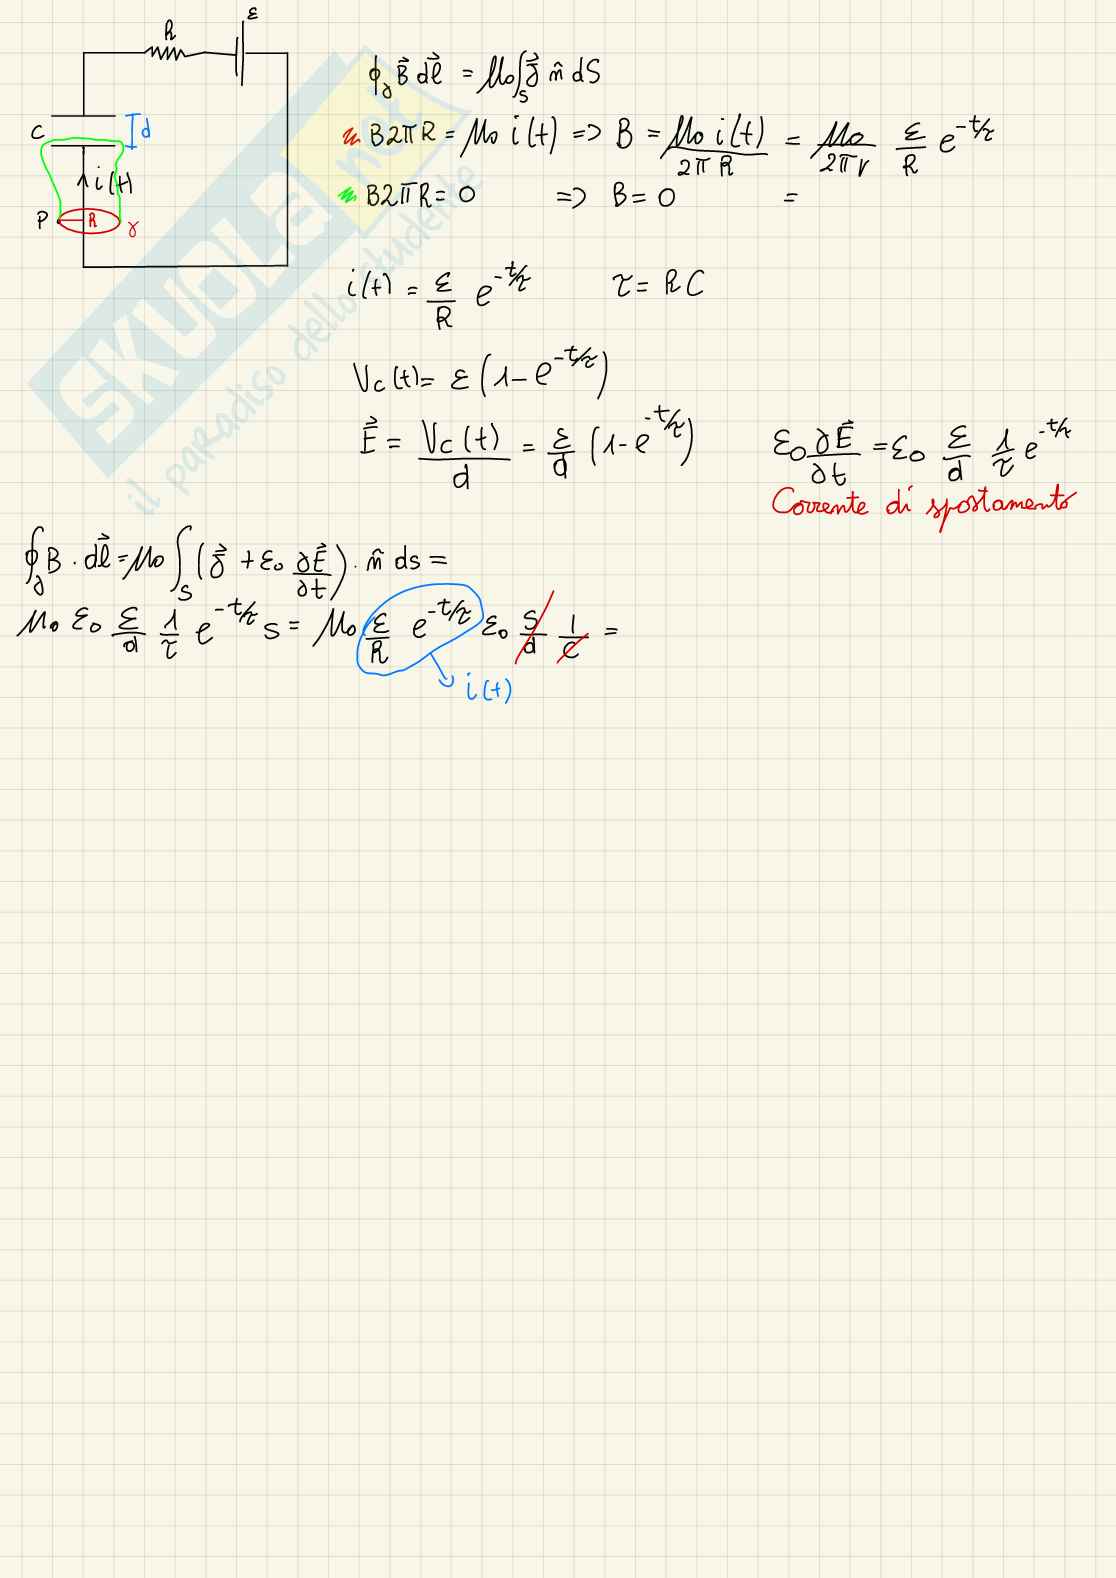 R ε
C d
i(t)
P R γ
∮_γ B⃗ dl⃗ = μ₀∫_S J⃗ n̂ dS
B2πR = μ₀ i(t) => B = μ₀ i(t) / 2πR = μ₀/2πr ε/R e^{-t/τ}
B2πR = 0 => B = 0 =
i(t) = ε/R e^{-t/τ} τ = RC
Vc(t) = ε (1 - e^{-t/τ})
E⃗ = Vc(t)/d = ε/d (1 - e^{-t/τ}) ε₀ ∂E⃗/∂t = ε₀ ε/d 1/τ e^{-t/τ}
Corrente di spostamento
∮_γ B · dl⃗ = μ₀ ∫_S (J⃗ + ε₀ ∂E⃗/∂t) · n̂ ds =
μ₀ ε₀ ε/d 1/τ e^{-t/τ} S = μ₀ ε/R e^{-t/τ} ε₀ S/d 1/C =
i(t)
SKUOLA.net
il paradiso dello studente